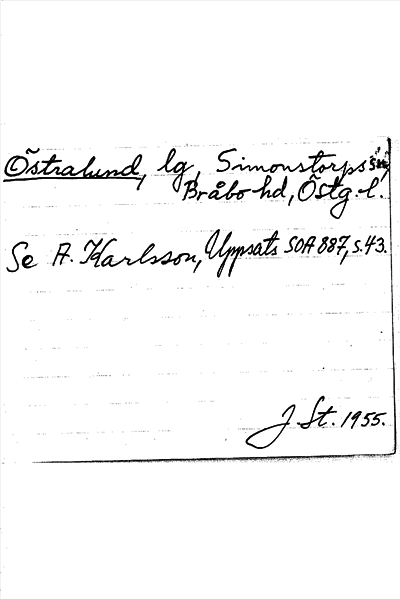 Östralund, lg, Simonstorps sn,
Bråbo hd, Östg. l.
Se A. Karlsson, Uppsats SOA 887, s. 43.
J St. 1955.